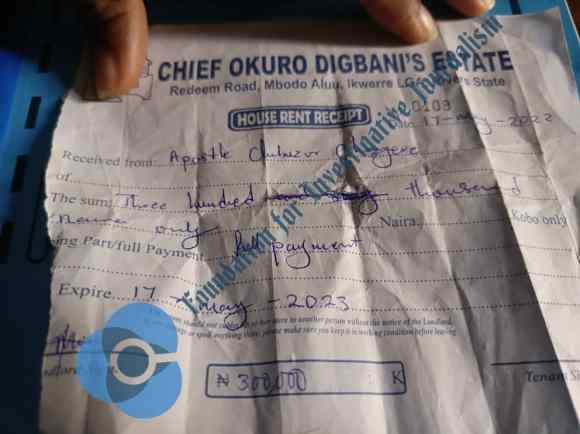 CHIEF OKURO DIGBANI'S ESTATE
Redeem Road, Mbodo Aluu, Ikwerre LGA Rivers State
HOUSE RENT RECEIPT
0103
Date: 17-May-2022
Received from: Apostle
of
The sum: Three hundred thousand
naira only Naira, Kobo only
ing Part/full Payment full payment
Expire 17 - May - 2023
to another person without the notice of the Landlord.
or spoil anything please make sure you keep it in working condition before leaving
₦ 300,000 : K
Tenant
Foundation for Investigative Journalism